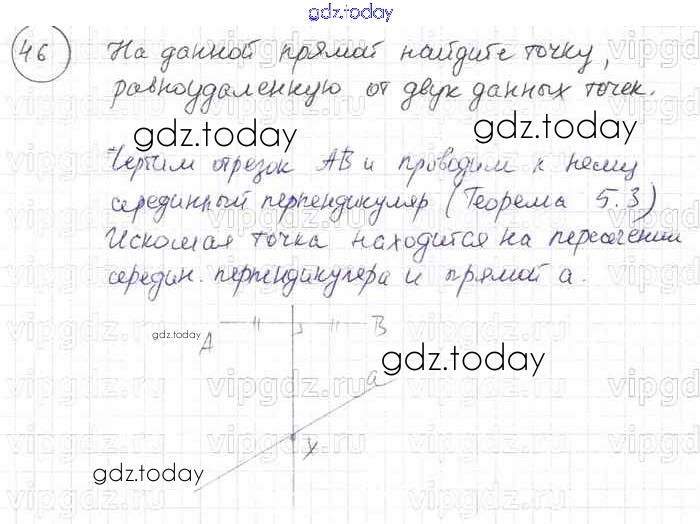 gdz.today
46 На данной прямой найдите точку,
равноудаленную от двух данных точек.
gdz.today
gdz.today
Чертим отрезок AB и проводим к нему
серединный перпендикуляр (Теорема 5.3)
Искомая точка находится на пересечении
середин. перпендикуляра и прямой a.
gdz.today
A
B
gdz.today
a
X
gdz.today